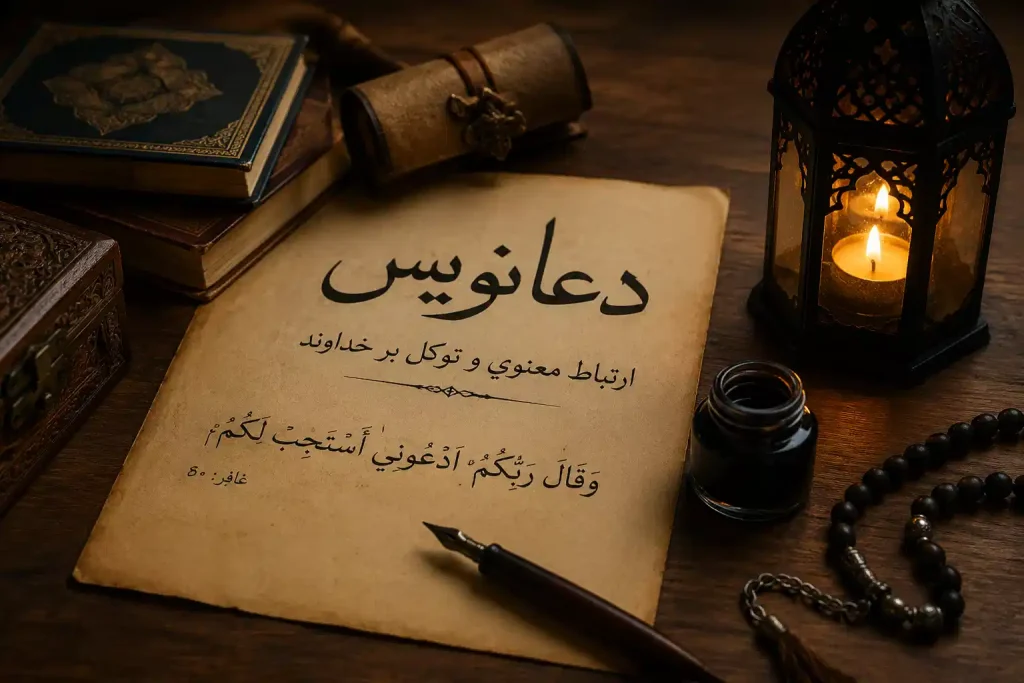 دعانویس
ارتباط معنوي و توکل بر خداوند
وَقَالَ رَبُّكُمُ ادْعُونِي أَسْتَجِبْ لَكُمْ
غافِر: ۶۰